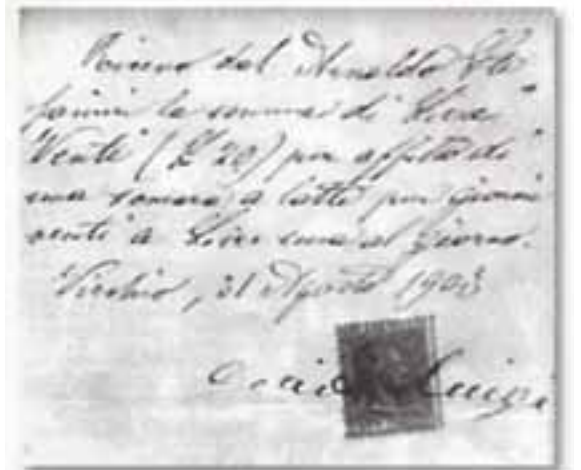 Ricevo dal Arnaldo
la somma di Lire
Venti (£ 20) per affitto di
una somara a latte per giorni
venti a Lire una al giorno.
Vicchio, 31 Agosto 1903
Luigi